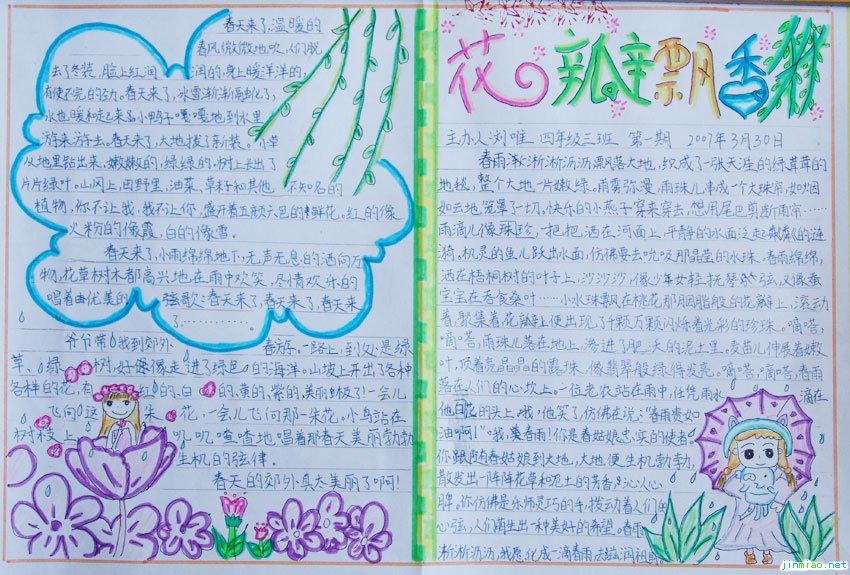 春天来了,温暖的
春风微微地吹,人们脱
去了冬装,脸上红润 润的,身上暖洋洋的,
有使不完的劲。春天来了,冰雪渐渐融化了,
水也暖和起来,小鸭子嘎嘎地到水里
游来游去。春天来了,大地披了新装。小草
从地里钻出来,嫩嫩的,绿绿的,树上长出了
片片绿叶。山冈上,田野里,油菜、草籽和其他 不知名的
植物,你不让我,我不让你,盛开着五颜六色的鲜花。红的像
火,粉的像霞,白的像雪。
春天来了,小雨绵绵地下,无声无息的洒向万
物,花草树木都高兴地在雨中欢笑,尽情欢乐的
唱着由优美的 弦歌:春天来了,春天来了,春天来
了…………。
爷爷带 我到郊外 春游。一路上,到处是绿
草、绿 树,好像走进了绿色 的海洋。山坡上开出了各种
各样的花,有 红的、白 的、黄的、紫的,美丽极了!一会儿
飞向这 朵 花,一会儿飞向那一朵花。小鸟站在
树枝上 叽叽喳喳地唱着那春天美丽勃勃
生机的弦律。
春天的郊外真太美丽了啊!
花瓣飘香
主办人刘唯 四年级三班 第一期 2007年3月30日
春雨渐渐淅淅沥沥飘落大地,织成了一张天涯的绿茸茸的
地毯,整个大地一片嫩绿,雨雾弥漫,雨珠儿串成一个大珠帘,如烟
如云地笼罩了一切。快乐的小燕子穿来穿去,想用尾巴剪断雨帘……
雨滴儿像珠珍,一把把洒在河面上,平静的水面泛起粼粼的涟
漪。机灵的鱼儿跃出水面,仿佛要去吮吸那晶莹的水珠。春雨绵绵,
洒在梧桐树的叶子上,沙沙沙,像少年女轻抚琴弦,又像蚕
宝宝在吞食桑叶……小水珠飘在桃花那胭脂般的花瓣上,滚动
着,聚集着,花瓣上便出现了千颗万颗闪烁着光彩的珍珠。嘀嗒,
嘀嗒,雨珠儿落在地上,渗进了肥沃的泥土里。麦苗儿伸展着嫩
叶,顶着亮晶晶的露珠,像翡翠般绿得发亮。嘀嗒,嘀嗒,春雨
落在人们的心坎上。一位老农站在雨中,任凭雨水 滴在
他的头上,哦!他笑了,仿佛在说:"春雨贵如
油啊!"哦,春雨!你是春姑娘忠实的使者
你跟随春姑娘到大地,大地便生机勃勃,
散发出一阵阵花草和泥土的芳香,沁人心
脾。你仿佛是乐师灵巧的手,拨动着人们的
心弦,人们萌生出一种美好的希望。春雨
淅淅沥沥,我愿化成一滴春雨去滋润祖国
jinmiao.net